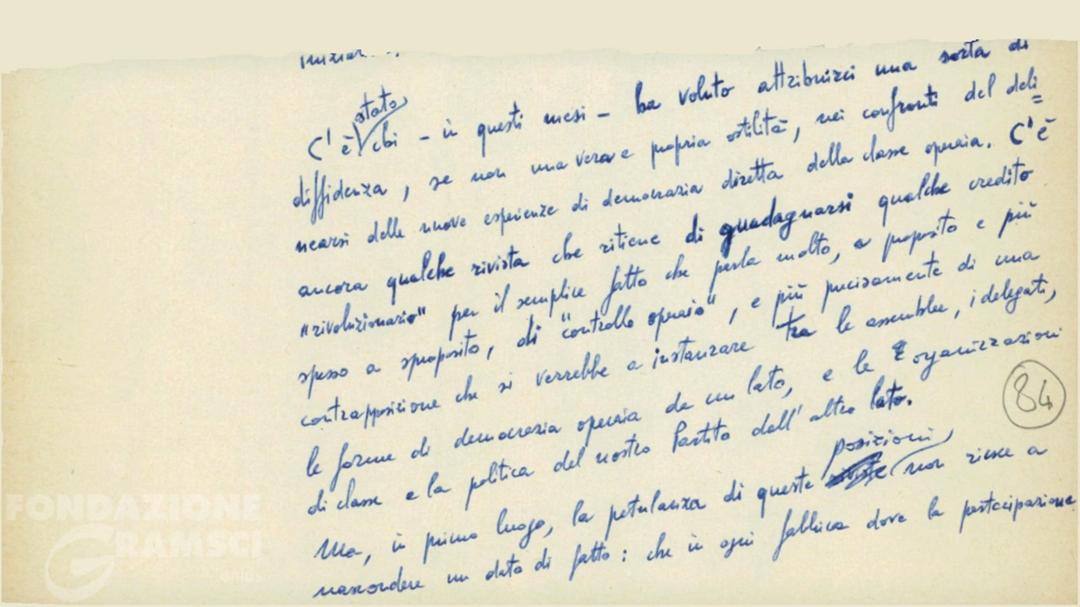 C'è stato chi – in questi mesi – ha voluto attribuirci una sorta di
diffidenza, se non una vera e propria ostilità, nei confronti del deli=
nearsi delle nuove esperienze di democrazia diretta della classe operaia. C'è
ancora qualche rivista che ritiene di guadagnarsi qualche credito
"rivoluzionario" per il semplice fatto che parla molto, a proposito e più
spesso a sproposito, di "controllo operaio", e più precisamente di una
contrapposizione che si verrebbe a instaurare tra le assemblee, i delegati,
le forme di democrazia operaia da un lato, e le organizzazioni
di classe e la politica del nostro Partito dall'altro lato.
84
Ma, in primo luogo, la petulanza di queste posizioni non riesce a
nascondere un dato di fatto: che in ogni fabbrica dove la partecipazione
FONDAZIONE
GRAMSCI